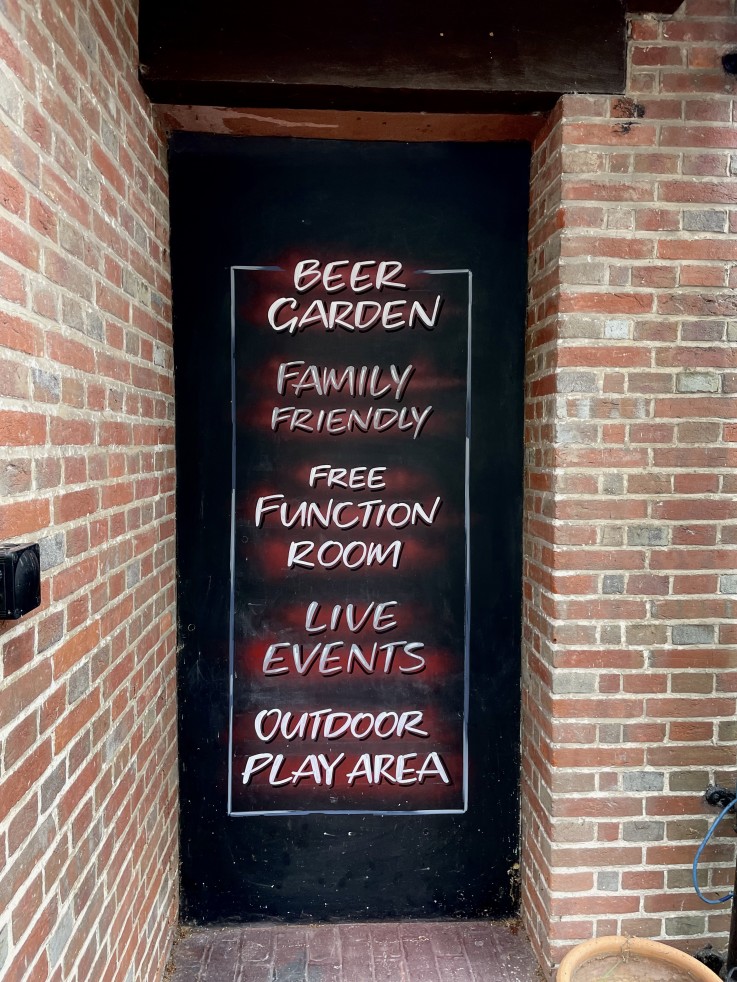 BEER
GARDEN
FAMILY
FRIENDLY
FREE
FUNCTION
ROOM
LIVE
EVENTS
OUTDOOR
PLAY AREA